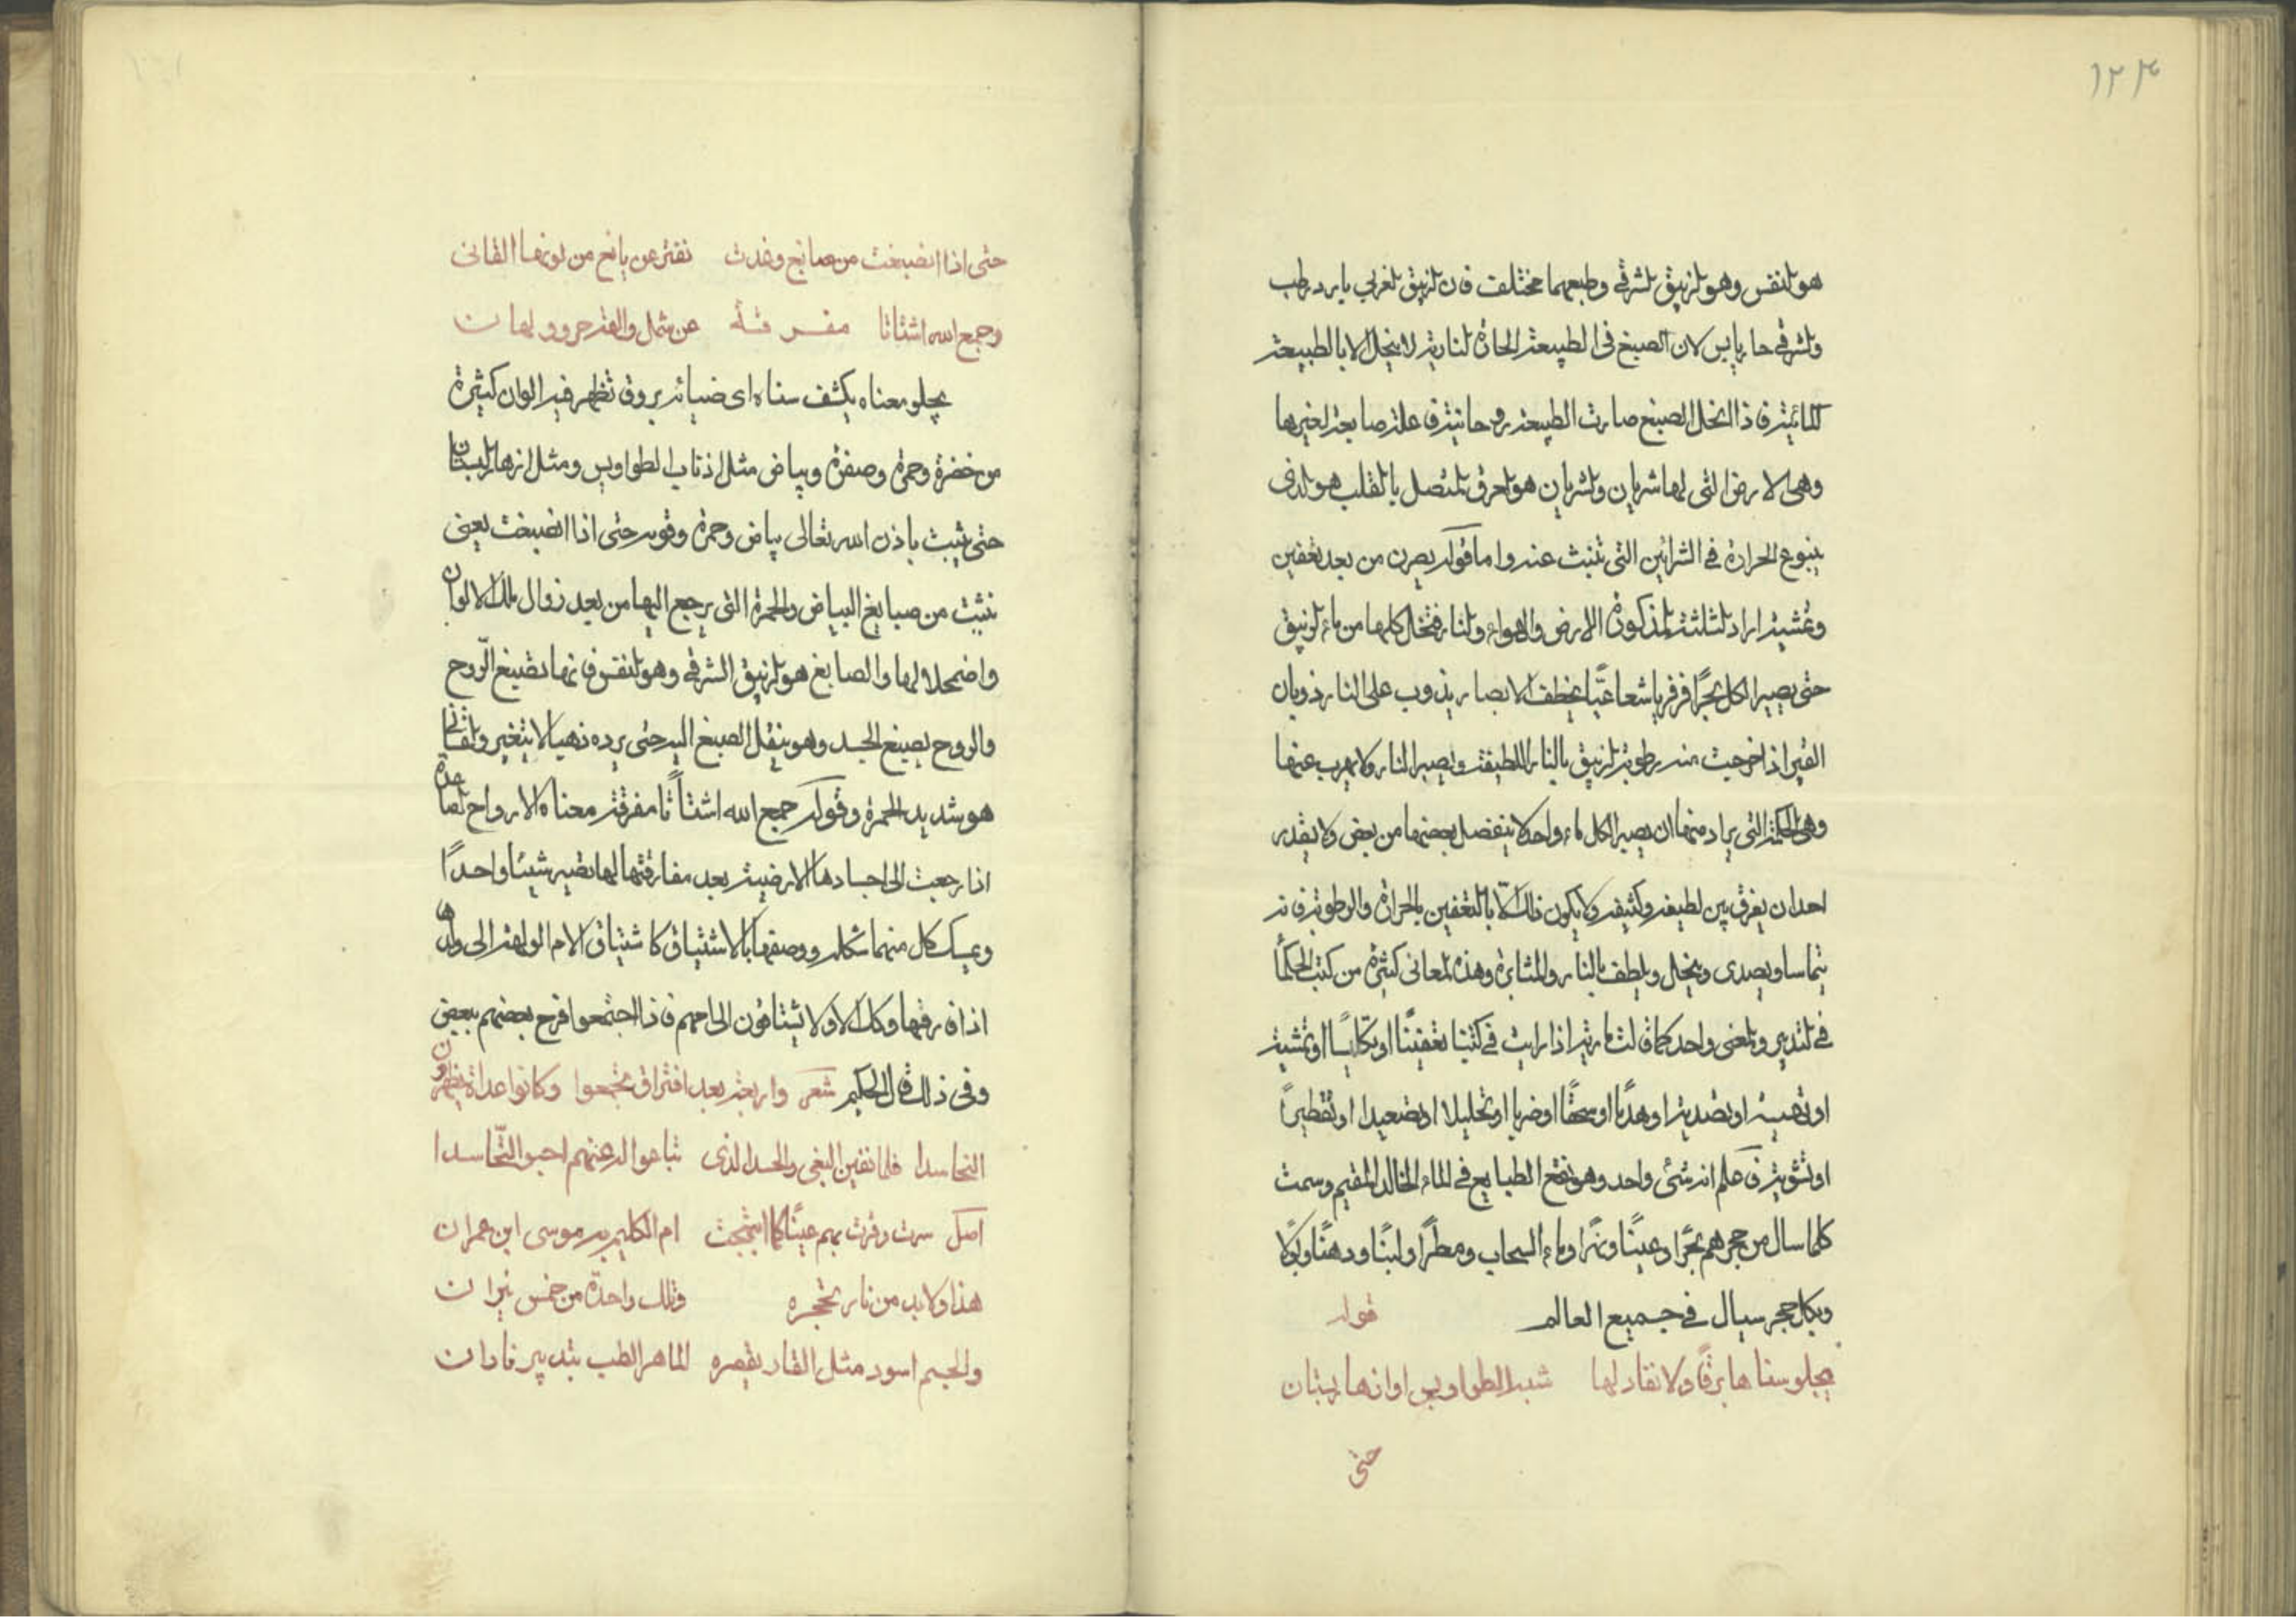 ١٢٣
هو النفس وهو الزيبق الشرقي وطبعهما مختلف فان الزيبق الغربي بارد رطب
والشرقي حار يابس لان الصبغ في الطبيعة الحارة النارية لا ينحل الا بالطبيعة
المائية فاذا انحل الصبغ صارت الطبيعة روحانية فاعلة صابغة لغيرها
وهي الارض التي لها شريان والشريان هو العرق المتصل بالقلب هو الذي
ينبوع الحرارة في الشرائين التي تنبث عنه واما قوله يصرن من بعد تعفين
وتمشية اراد الثلثة المذكورة الارض والهواء والنار فتنحل كلها من ماء الزيبق
حتى يصير الكل بحرًا فرفريا شعاعيًّا يخطف الابصار يذوب على النار ذوبان
القير اذا خرجت منه رطوبة الزيبق بالنار اللطيفة ويصير النار ولا يهرب عنها
وهي الحكمة التي يراد منها ان يصير الكل ماء واحد لا ينفصل بعضها من بعض ولا يقدر
احد ان يفرق بين لطيفه وكثيفه ولا يكون ذلك الا بالتعفين بالحرارة والرطوبة فانه
يتماسا ويصدى وينحل ويلطف بالنار والمثابرة وهذه المعاني كثيرة من كتب الحكمأ
في التدبير والمعنى واحد كما قالت مارية اذا رايت في كتبنا تعفينًا او تكليسًا او تمشية
او تهبية او تصدية او هدمًا او سحقًا او ضربا او تحليلا او تصعيدا او تقطيرًا
او تشوية فاعلم انه شئ واحد وهو نقع الطبايع في الماء الخالد المقيم وسمت
كلما سال من حجرهم بحرًا وعينًا ونهرًا وماء السحاب ومطرًا ولبنًا ودهنًا وبولًا
وبكل حجر سيال في جميع العالم قوله
يجلو سناها برقًا ولا نفاد لها شبه الطواويس او ازهار بستان
حتى
حتى اذا انصبغت من صابغ وغدت تفتر عن يانع من لونها القاني
وجمع الله اشتاتا مفرقة عن شمل والفة حر وولهان
يجلو معناه يكشف سناه اي ضيائه بروق تظهر فيه الوان كثيرة
من خضرة وحمرة وصفرة وبياض مثل اذناب الطواويس ومثل ازهار البستان
حتى يثبت باذن الله تعالى بياض وحمرة وقوله حتى اذا انصبغت يعني
تثبت من صبايغ البياض والحمرة التي يرجع اليها من بعد زوال تلك الالوان
واضمحلالها والصابغ هو الزيبق الشرقي وهو النفس فانها تصبغ الرّوح
والروح يصبغ الجسد وهو ينقل الصبغ اليه حتى يرده ذهبا لا يتغير والقاني
هو شديد الحمرة وقوله جمع الله اشتاًتا مفرقة معناه الارواح الصاعدة
اذا رجعت الى اجسادها الارضية بعد مفارقتها لها تصير شيئا واحدًا
ويمسك كل منهما شكله ووصفها بالاشتياق كاشتياق الام الولهة الى ولدها
اذا فارقها وكذلك الاولاد يشتاقون الى امهم فاذا اجتمعوا فرح بعضهم ببعض
وفي ذلك قال الحكيم شعر واربعة بعد افتراق تجمعوا وكانوا عداة يظهرون
التحاسدا فلما نقين البغي والحسد الذي تباعوا له عنهم احبوا التّحاسدا
اصل سرت وقرت بهم عينًا كما ابتهجت ام الكليم به موسى ابن عمران
هذا ولا بد من نار تحجره وتلك واحدة من خمس نيران
والجسم اسود مثل القار يقصره الماهر الطب بتدبير فاران